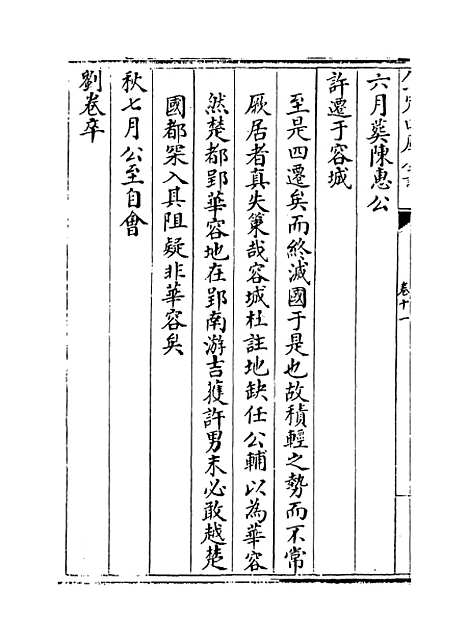 六月葬陳惠公
許遷于容城
至是四遷矣而終滅國于是也故積輕之勢而不常
厥居者真失策哉容城杜註地缺任公輔以為華容
然楚都郢華容地在郢南游吉獲許男未必敢越楚
國都罙入其阻疑非華容矣
秋七月公至自會
劉卷卒
卷十一